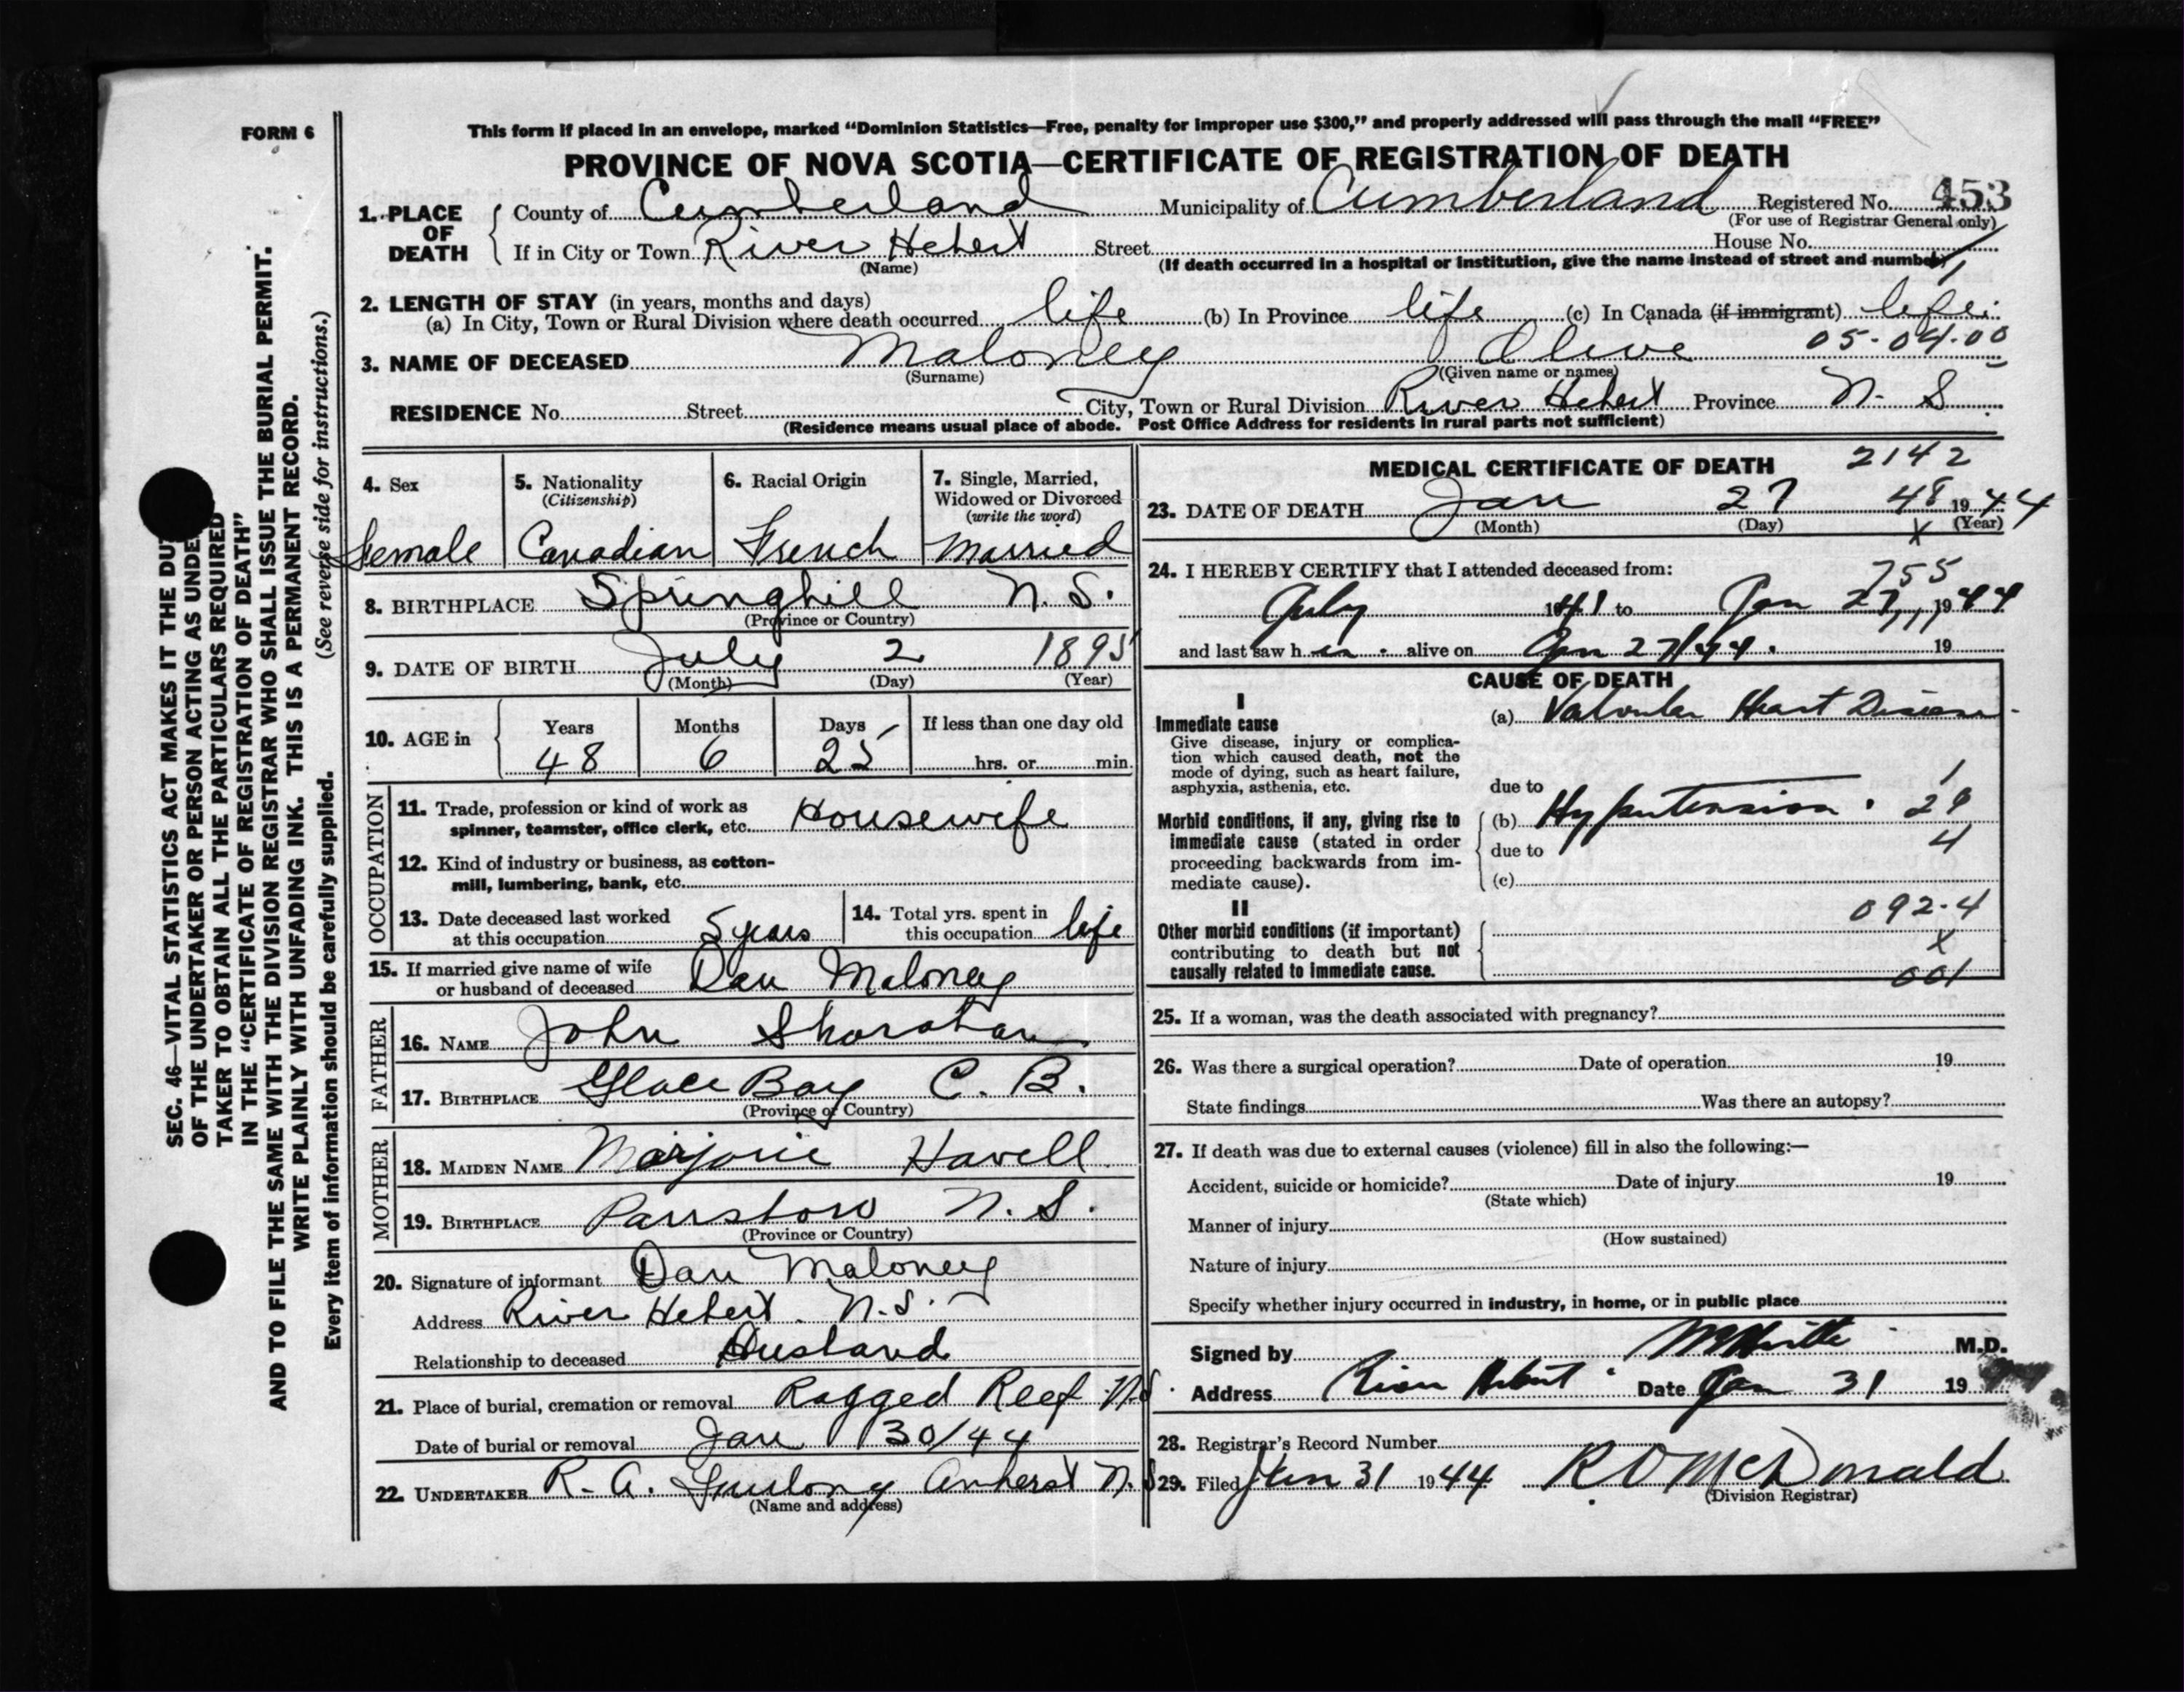 FORM 6
This form if placed in an envelope, marked "Dominion Statistics—Free, penalty for improper use $300," and properly addressed will pass through the mail "FREE"
PROVINCE OF NOVA SCOTIA—CERTIFICATE OF REGISTRATION OF DEATH
1. PLACE OF DEATH County of Cumberland Municipality of Cumberland Registered No. 453
(For use of Registrar General only)
If in City or Town River Hebert Street House No.
(Name) (If death occurred in a hospital or institution, give the name instead of street and number) 1
2. LENGTH OF STAY (in years, months and days)
(a) In City, Town or Rural Division where death occurred life (b) In Province life (c) In Canada (if immigrant) life
3. NAME OF DECEASED Maloney Olive 05-04-00
(Surname) (Given name or names)
RESIDENCE No. Street City, Town or Rural Division River Hebert Province N. S.
(Residence means usual place of abode. Post Office Address for residents in rural parts not sufficient)
4. Sex 5. Nationality (Citizenship) 6. Racial Origin 7. Single, Married, Widowed or Divorced (write the word)
Female Canadian French Married
8. BIRTHPLACE Springhill N. S.
(Province or Country)
9. DATE OF BIRTH July 2 1895
(Month) (Day) (Year)
10. AGE in Years Months Days If less than one day old
48 6 25 hrs. or min.
OCCUPATION
11. Trade, profession or kind of work as
spinner, teamster, office clerk, etc. Housewife
12. Kind of industry or business, as cotton-
mill, lumbering, bank, etc.
13. Date deceased last worked
at this occupation 5 years
14. Total yrs. spent in
this occupation life
15. If married give name of wife
or husband of deceased Dan Maloney
FATHER
16. NAME John
17. BIRTHPLACE Glace Bay C. B.
(Province or Country)
MOTHER
18. MAIDEN NAME Marjorie Havell
19. BIRTHPLACE Parrsboro N. S.
(Province or Country)
20. Signature of informant Dan Maloney
Address River Hebert N.S.
Relationship to deceased Husband
21. Place of burial, cremation or removal Ragged Reef N.S.
Date of burial or removal Jan 30/44
22. UNDERTAKER R. A. Amherst N.S.
(Name and address)
MEDICAL CERTIFICATE OF DEATH 2142
23. DATE OF DEATH Jan 27 48 1944
(Month) (Day) x (Year)
24. I HEREBY CERTIFY that I attended deceased from: 755
July 1941 to Jan 27, 1944
and last saw her alive on Jan 27/44. 19
CAUSE OF DEATH
I
Immediate cause (a) Valvular Heart Disease
Give disease, injury or complica-
tion which caused death, not the
mode of dying, such as heart failure,
asphyxia, asthenia, etc.
due to 1
Morbid conditions, if any, giving rise to (b) Hypertension. 29
immediate cause (stated in order due to 4
proceeding backwards from im-
mediate cause). (c)
II 092-4
Other morbid conditions (if important) x
contributing to death but not
causally related to immediate cause. 001
25. If a woman, was the death associated with pregnancy?
26. Was there a surgical operation? Date of operation 19
State findings Was there an autopsy?
27. If death was due to external causes (violence) fill in also the following:—
Accident, suicide or homicide? Date of injury 19
(State which)
Manner of injury
(How sustained)
Nature of injury
Specify whether injury occurred in industry, in home, or in public place
Signed by M.D.
Address River Hebert Date Jan 31 19
28. Registrar's Record Number
29. Filed Jan 31 1944 R O McDonald
(Division Registrar)
SEC. 46—VITAL STATISTICS ACT MAKES IT THE DU
OF THE UNDERTAKER OR PERSON ACTING AS UNDE
TAKER TO OBTAIN ALL THE PARTICULARS REQUIRED
IN THE "CERTIFICATE OF REGISTRATION OF DEATH"
AND TO FILE THE SAME WITH THE DIVISION REGISTRAR WHO SHALL ISSUE THE BURIAL PERMIT.
WRITE PLAINLY WITH UNFADING INK. THIS IS A PERMANENT RECORD.
Every item of information should be carefully supplied. (See reverse side for instructions.)